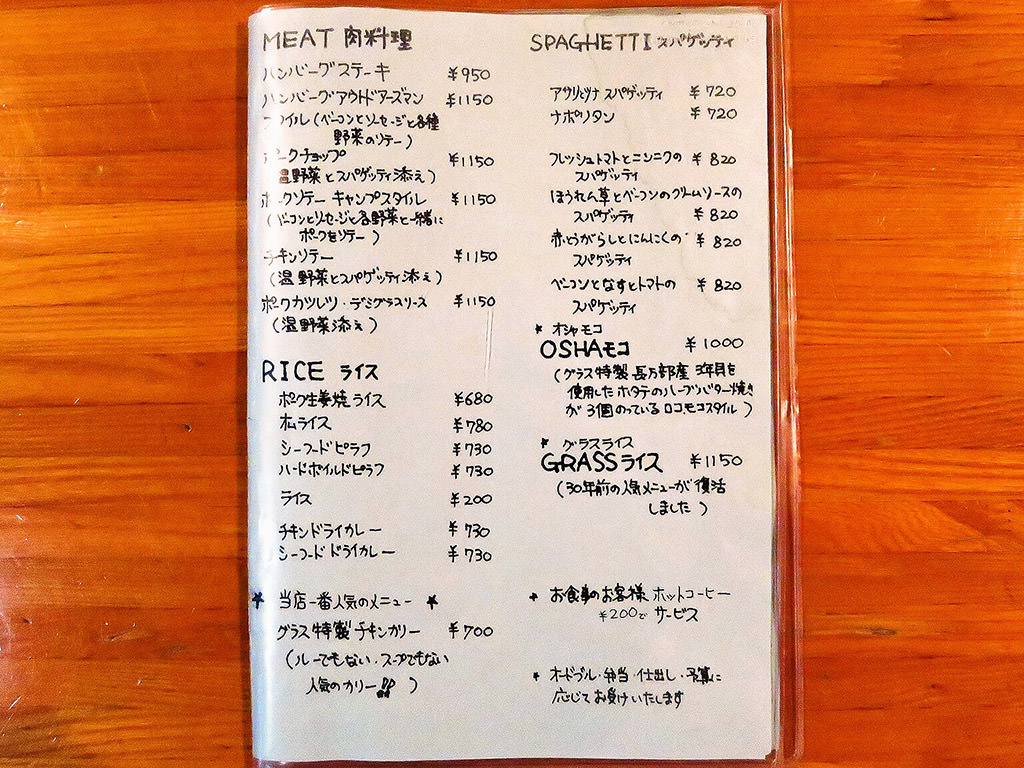 MEAT 肉料理
ハンバーグステーキ ¥950
ハンバーグアウトドアーズマン ¥1150
スタイル(ベーコンとソーセージと各種
野菜のソテー)
ポークチョップ ¥1150
(温野菜とスパゲッティ添え)
ポークソテー キャンプスタイル ¥1150
(ベーコンとソーセージと各野菜と一緒に
ポークをソテー)
チキンソテー ¥1150
(温野菜とスパゲッティ添え)
ポークカツレツ・デミグラスソース ¥1150
(温野菜添え)
RICE ライス
ポーク生姜焼ライス ¥680
オムライス ¥780
シーフードピラフ ¥730
ハードボイルドピラフ ¥730
ライス ¥200
チキンドライカレー ¥730
シーフードドライカレー ¥730
★ 当店一番人気のメニュー ★
グラス特製チキンカリー ¥700
(ルーでもない・スープでもない
人気のカリー!!)
SPAGHETTI スパゲッティ
アサリとツナ スパゲッティ ¥720
ナポリタン ¥720
フレッシュトマトとニンニクの ¥820
スパゲッティ
ほうれん草とベーコンのクリームソースの
スパゲッティ ¥820
赤とうがらしとにんにくの ¥820
スパゲッティ
ベーコンとなすとトマトの ¥820
スパゲッティ
★ オシャモコ
OSHAモコ ¥1000
(グラス特製 長万部産 3年貝を
使用したホタテのハーブバター焼き
が3個のっているロコモコスタイル)
★ グラスライス
GRASSライス ¥1150
(30年前の人気メニューが復活
しました)
★ お食事のお客様 ホットコーヒー
¥200で サービス
★ オードブル・弁当・仕出し・予算に
応じてお受けいたします